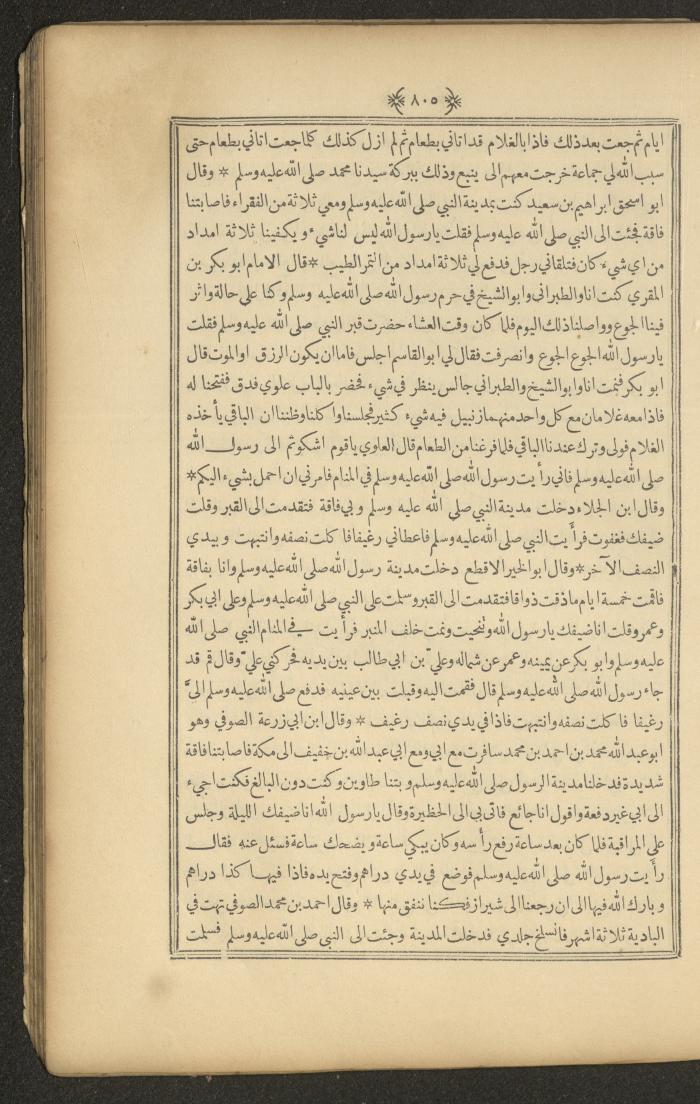 ٨٠٥
ايام ثم جعت بعد ذلك فاذا بالغلام قد اتاني بطعام ثم لم ازل كذلك كلما جعت اتاني بطعام حتى
سبب الله لي جماعة خرجت معهم الى ينبع وذلك ببركة سيدنا محمد صلى الله عليه وسلم * وقال
ابو اسحق ابراهيم بن سعيد كنت بمدينة النبي صلى الله عليه وسلم ومعي ثلاثة من الفقراء فاصابتنا
فاقة فجئت الى النبي صلى الله عليه وسلم فقلت يا رسول الله ليس لنا شيء ويكفينا ثلاثة امداد
من اي شيء كان فتلقاني رجل فدفع لي ثلاثة امداد من التمر الطيب * قال الامام ابو بكر بن
المقري كنت انا والطبراني وابو الشيخ في حرم رسول الله صلى الله عليه وسلم وكنا على حالة واثر
فينا الجوع وواصلنا ذلك اليوم فلما كان وقت العشاء حضرت قبر النبي صلى الله عليه وسلم فقلت
يا رسول الله الجوع الجوع وانصرفت فقال لي ابو القاسم اجلس فاما ان يكون الرزق او الموت قال
ابو بكر فنمت انا وابو الشيخ والطبراني جالس ينظر في شيء فحضر بالباب علوي فدق ففتحنا له
فاذا معه غلامان مع كل واحد منهما زنبيل فيه شيء كثير فجلسنا واكلنا وظننا ان الباقي يأخذه
الغلام فولى وترك عندنا الباقي فلما فرغنا من الطعام قال العلوي يا قوم اشكوتم الى رسول الله
صلى الله عليه وسلم فاني رأيت رسول الله صلى الله عليه وسلم في المنام فامرني ان احمل بشيء اليكم *
وقال ابن الجلاء دخلت مدينة النبي صلى الله عليه وسلم وبي فاقة فتقدمت الى القبر وقلت
ضيفك فغفوت فرأيت النبي صلى الله عليه وسلم فاعطاني رغيفا فاكلت نصفه وانتبهت وبيدي
النصف الآخر * وقال ابو الخير الاقطع دخلت مدينة رسول الله صلى الله عليه وسلم وانا بفاقة
فاقمت خمسة ايام ما ذقت ذواقا فتقدمت الى القبر وسلمت على النبي صلى الله عليه وسلم وعلى ابي بكر
وعمر وقلت انا ضيفك يا رسول الله وتنحيت ونمت خلف المنبر فرأيت في المنام النبي صلى الله
عليه وسلم وابو بكر عن يمينه وعمر عن شماله وعليّ بن ابي طالب بين يديه فحركني عليّ وقال قم قد
جاء رسول الله صلى الله عليه وسلم قال فقمت اليه وقبلت بين عينيه فدفع صلى الله عليه وسلم اليّ
رغيفا فاكلت نصفه وانتبهت فاذا في يدي نصف رغيف * وقال ابن ابي زرعة الصوفي وهو
ابو عبد الله محمد بن احمد بن محمد سافرت مع ابي ومع ابي عبد الله بن خفيف الى مكة فاصابتنا فاقة
شديدة فدخلنا مدينة الرسول صلى الله عليه وسلم وبتنا طاوين وكنت دون البالغ فكنت اجيء
الى ابي غير دفعة واقول انا جائع فاتى بي الى الحظيرة وقال يا رسول الله انا ضيفك الليلة وجلس
على المراقبة فلما كان بعد ساعة رفع رأسه وكان يبكي ساعة ويضحك ساعة فسئل عنه فقال
رأيت رسول الله صلى الله عليه وسلم فوضع في يدي دراهم وفتح يده فاذا فيها كذا دراهم
وبارك الله فيها الى ان رجعنا الى شيراز فكنا ننفق منها * وقال احمد بن محمد الصوفي تهت في
البادية ثلاثة اشهر فانسلخ جلدي فدخلت المدينة وجئت الى النبي صلى الله عليه وسلم فسلمت